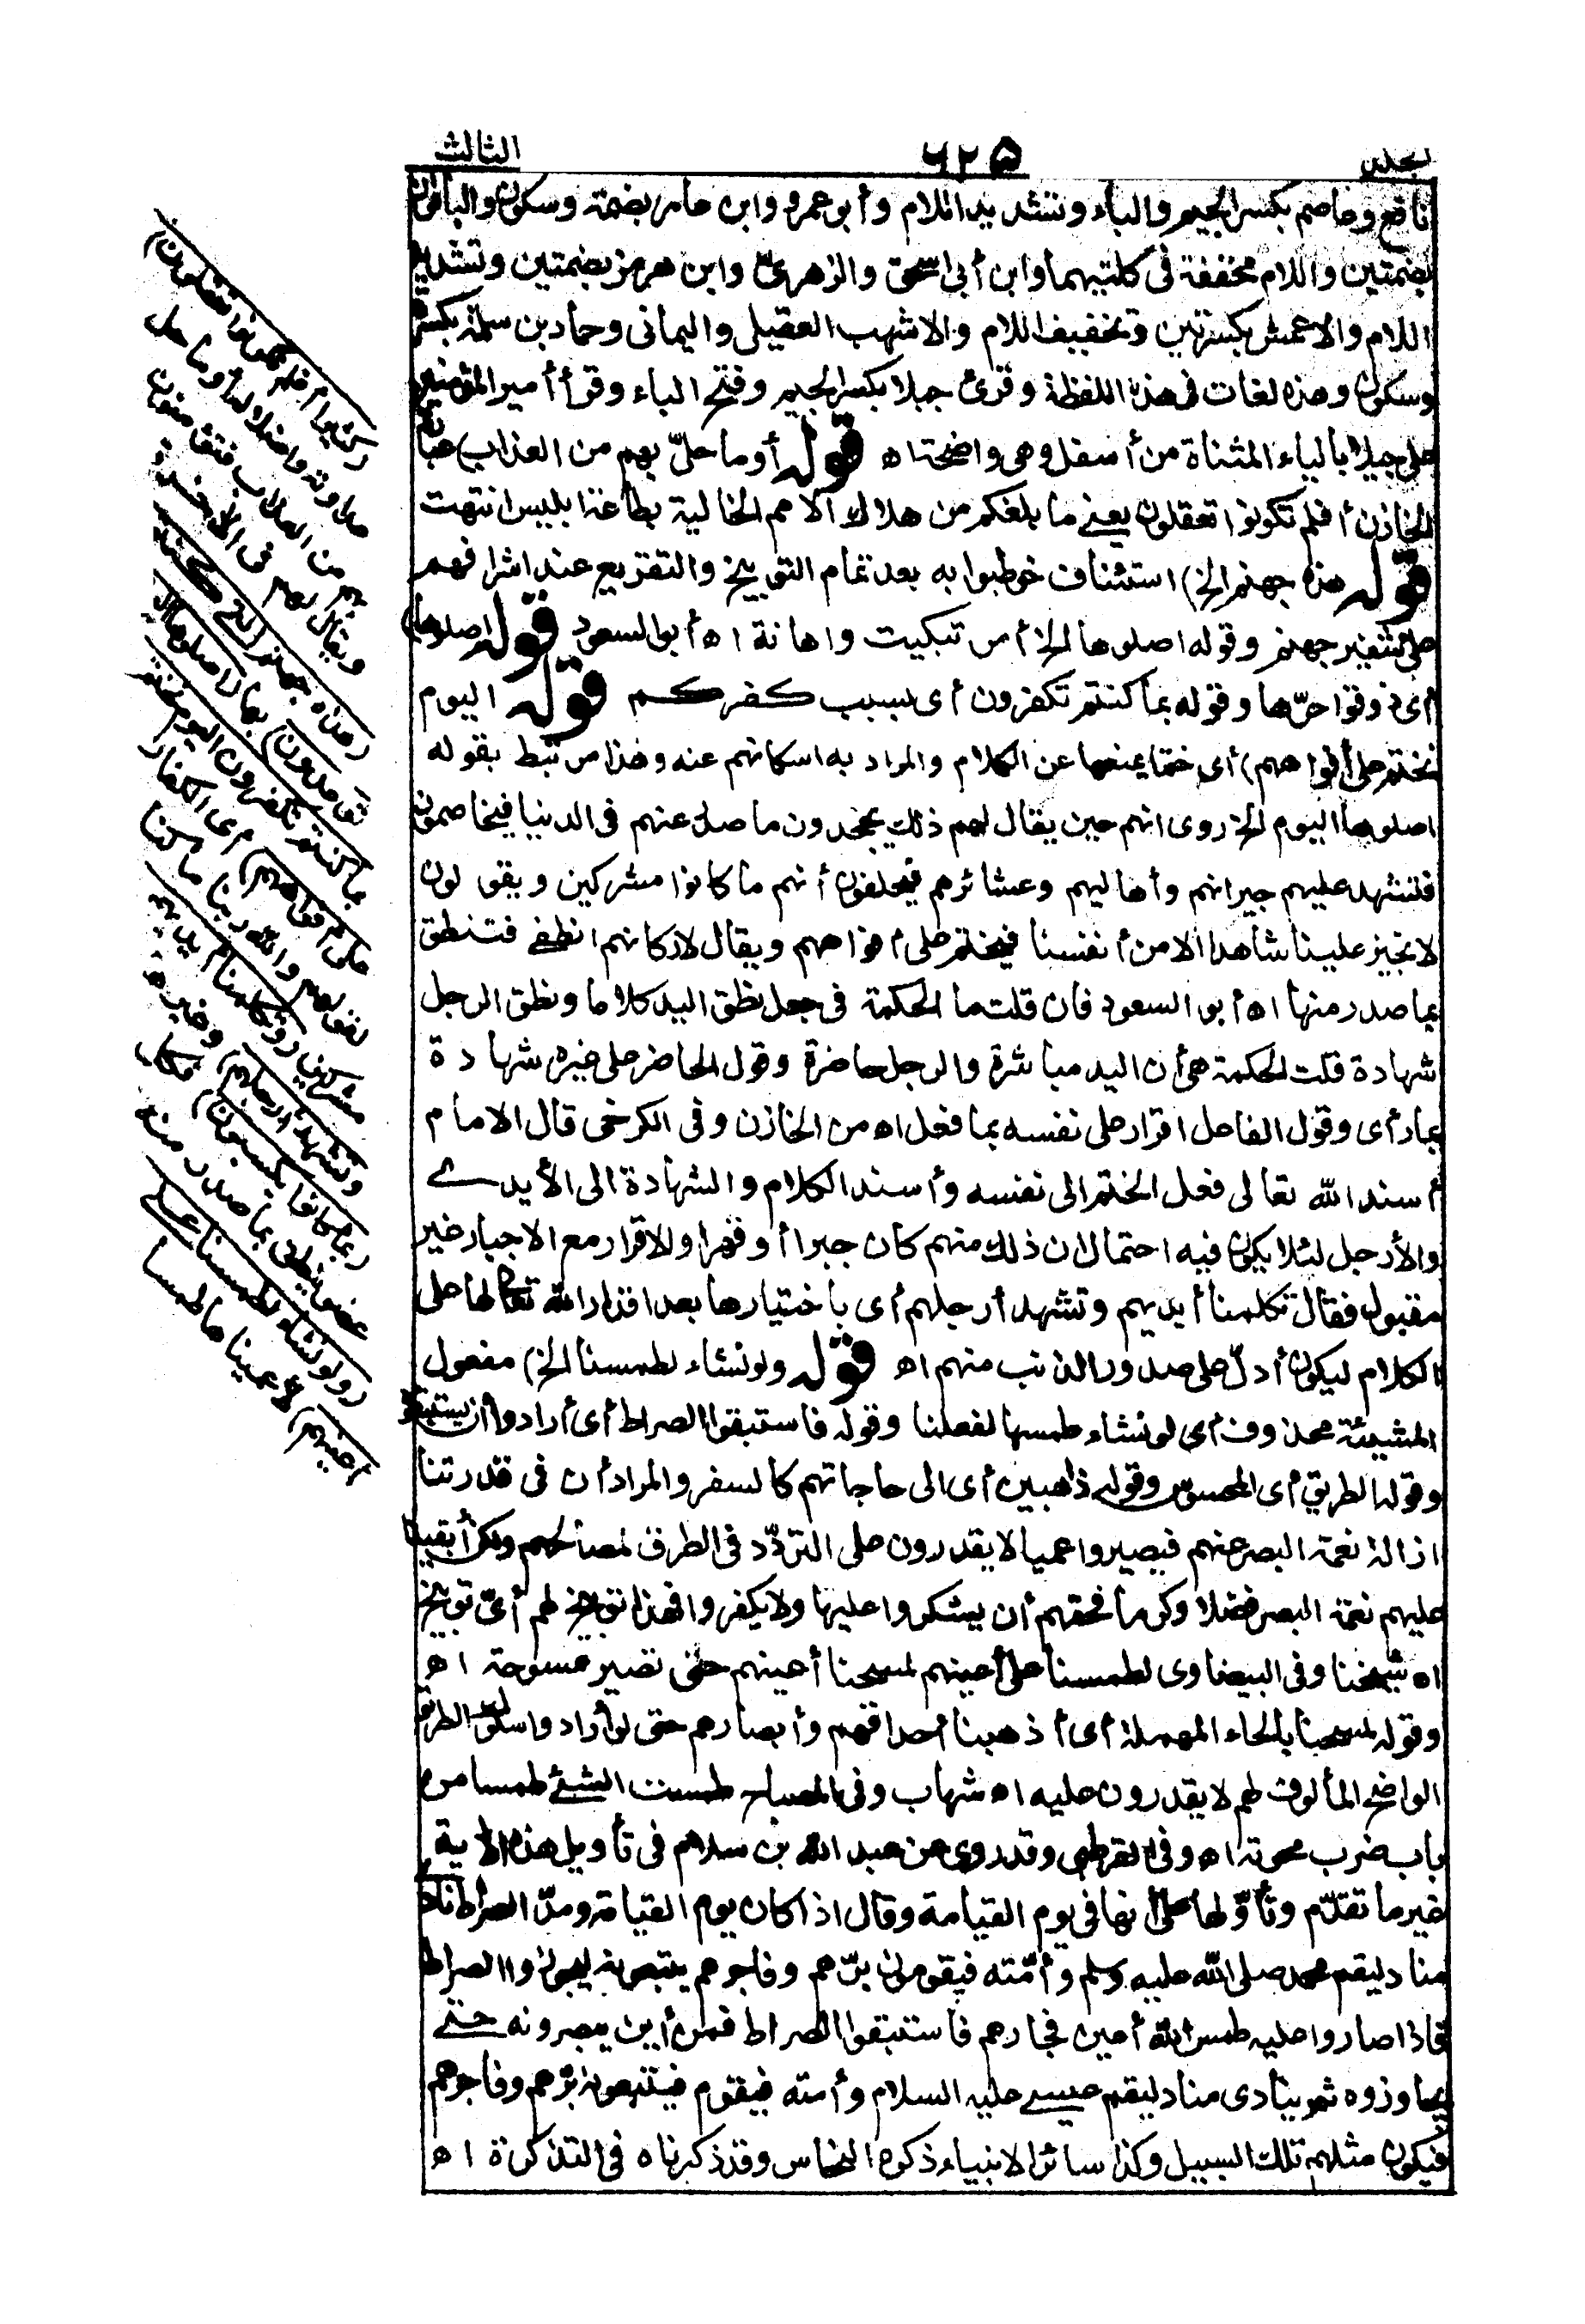 الجلد
٦٢٥
الثالث
نافع وعاصم بكسر الجيم والباء وتشديد اللام وأبو عمرو وابن عامر بضمة وسكون والباقون
بضمتين واللام مخففة فى كلتيهما وابن أبى اسحق والزهرى وابن هرمز بضمتين وتشديد
اللام والاعمش بكسرتين وتخفيف اللام والاشهب العقيلى واليمانى وحماد بن سلمة بكسرة
وسكون وهذه لغات فى هذه اللفظة وقرئ جبلا بكسر الجيم وفتح الباء وقرأ أمير المؤمنين
على جيلا بالياء المثناة من أسفل وهى واضحة اه قوله أو ما حلّ بهم من العذاب) عبارة
الخازن أفلم تكونوا تعقلون يعنى ما بلغكم من هلاك الامم الخالية بطاعة ابليس انتهت
قوله هذه جهنم الخ) استئناف خوطبوا به بعد تمام التوبيخ والتقريع عند اشرافهم
على شفير جهنم وقوله اصلوها الخ أمر تبكيت واهانة اه أبو السعود قوله اصلوها)
أى ذوقوا حرّها وقوله بما كنتم تكفرون أى بسبب كفركم قوله اليوم
نختم على أفواههم) أى ختما يمنعها عن الكلام والمراد به اسكاتهم عنه وهذا مرتبط بقوله
اصلوها اليوم الخ روى انهم حين يقال لهم ذلك يجحدون ما صدر عنهم فى الدنيا فيخاصمون
فتشهد عليهم جيرانهم وأهاليهم وعشائرهم فيحلفون أنهم ما كانوا مشركين ويقولون
لا نجيز علينا شاهدا الا من أنفسنا فيختم على أفواههم ويقال لاركانهم انطقى فتنطق
بما صدر منها اه أبو السعود فان قلت ما الحكمة فى جعل نطق اليد كلاما ونطق الرجل
شهادة قلت الحكمة هى أن اليد مباشرة والرجل حاضرة وقول الحاضر على غيره شهادة
بما رأى وقول الفاعل اقرار على نفسه بما فعل اه من الخازن وفى الكرخى قال الامام
أسند الله تعالى فعل الختم الى نفسه وأسند الكلام والشهادة الى الأيدى
والأرجل لئلا يكون فيه احتمال ان ذلك منهم كان جبرا أو قهرا والاقرار مع الاجبار غير
مقبول فقال تكلمنا أيديهم وتشهد أرجلهم أى باختيارها بعد اقدار الله تعالى لها على
الكلام ليكون أدلّ على صدور الذنب منهم اه قوله ولو نشاء لطمسنا الخ) مفعول
المشيئة محذوف أى لو نشاء طمسها لفعلنا وقوله فاستبقوا الصراط أى أرادوا أن يستبقوا
وقوله الطريق أى المحسوس وقوله ذاهبين أى الى حاجاتهم كالسفر والمراد أن فى قدرتنا
ازالة نعمة البصر عنهم فيصيروا عميا لا يقدرون على التردّد فى الطرق لمصالحهم ولكن أبقينا
عليهم نعمة البصر فضلا وكرما فحقهم أن يشكروا عليها ولا يكفروا فهذا توبيخ لهم أىّ توبيخ
اه شيخنا وفى البيضاوى لطمسنا على أعينهم لمسحنا أعينهم حتى تصير ممسوحة اه
وقوله لمسحنا بالحاء المهملة أى أذهبنا أحداقهم وأبصارهم حتى لو أرادوا سلوك الطريق
الواضح المألوف لهم لا يقدرون عليه اه شهاب وفى المصباح طمست الشئ طمسا من
باب ضرب محوته اه وفى القرطبى وقد روى عن عبد الله بن سلام فى تأويل هذه الآية
غير ما تقدّم وتأوّلها على أنها فى يوم القيامة وقال اذا كان يوم القيامة ومدّ الصراط نادى
مناد ليقم محمد صلى الله عليه وسلم وأمّته فيقومون برّهم وفاجرهم يتبعونه ليجوزوا الصراط
فاذا صاروا عليه طمس الله أعين فجارهم فاستبقوا الصراط فمن أين يبصرونه حتى
يجاوزوه ثم ينادى مناد ليقم عيسى عليه السلام وأمته فيقوم فيتبعونه برّهم وفاجرهم
فيكون مثلهم تلك السبيل وكذا سائر الانبياء ذكره النحاس وقد ذكرناه فى التذكرة اه
بهم من العذاب فتؤمنون
ويقال لهم فى الآخرة
(هذه جهنم التى كنتم
توعدون) بها (اصلوها اليوم
بما كنتم تكفرون اليوم نختم
على أفواههم) أى الكفار
لقولهم والله ربنا ما كنا
مشركين (وتكلمنا أيديهم
وتشهد أرجلهم) وغيرها
(بما كانوا يكسبون) فكل
عضو ينطق بما صدر منه
(ولو نشاء لطمسنا على
أعينهم) لأعميناها طمسا